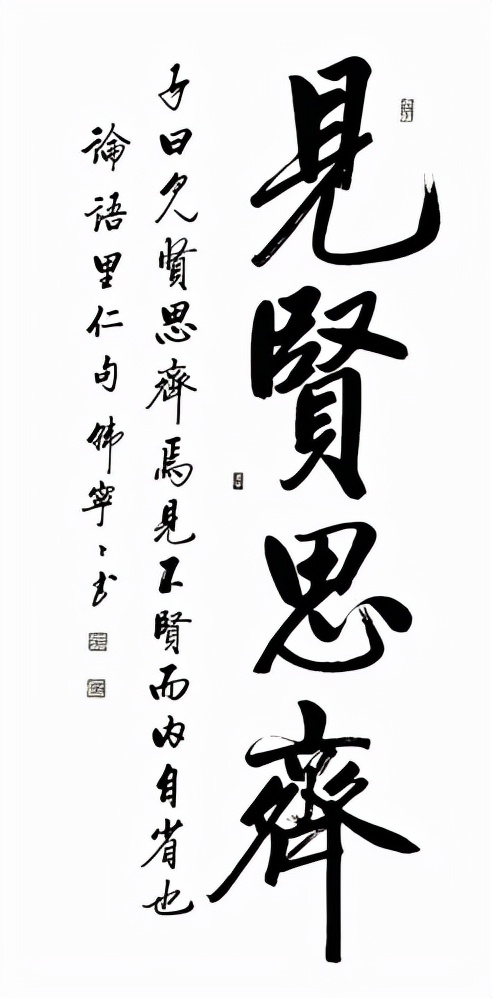 見賢思齊
子曰見賢思齊焉見不賢而內自省也
論語里仁句韩寧寧书